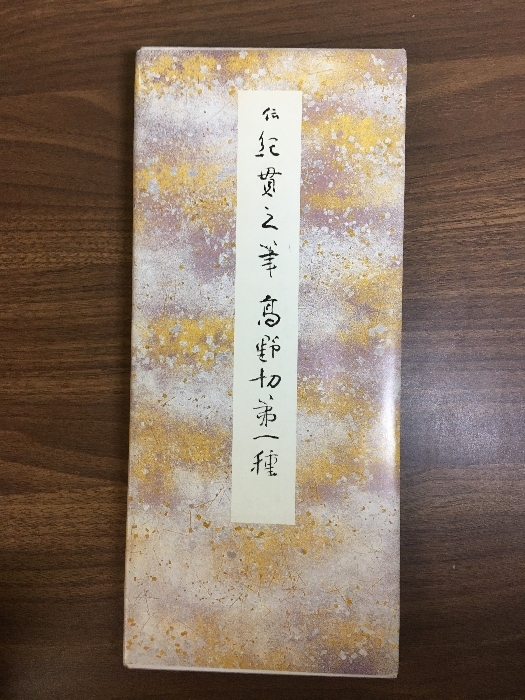 伝 紀貫之筆 高野切第一種